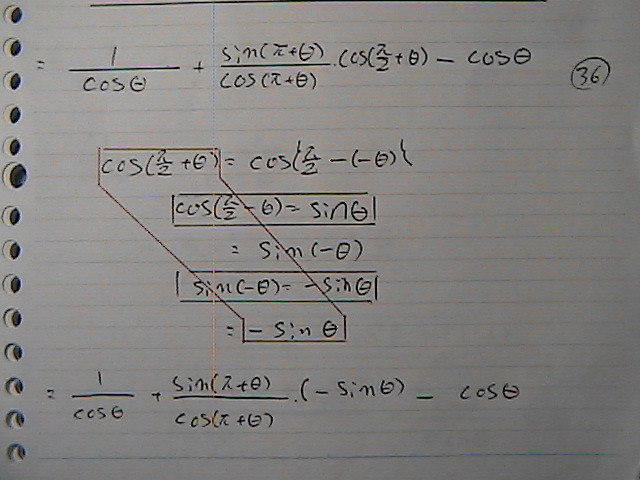 = 1/cosθ + sin(π+θ)/cos(π+θ) . cos(π/2+θ) - cosθ (36)
cos(π/2+θ) = cos{π/2-(-θ)}
cos(π/2-θ) = sinθ
= sin(-θ)
sin(-θ) = -sinθ
= -sinθ
= 1/cosθ + sin(π+θ)/cos(π+θ) . (-sinθ) - cosθ